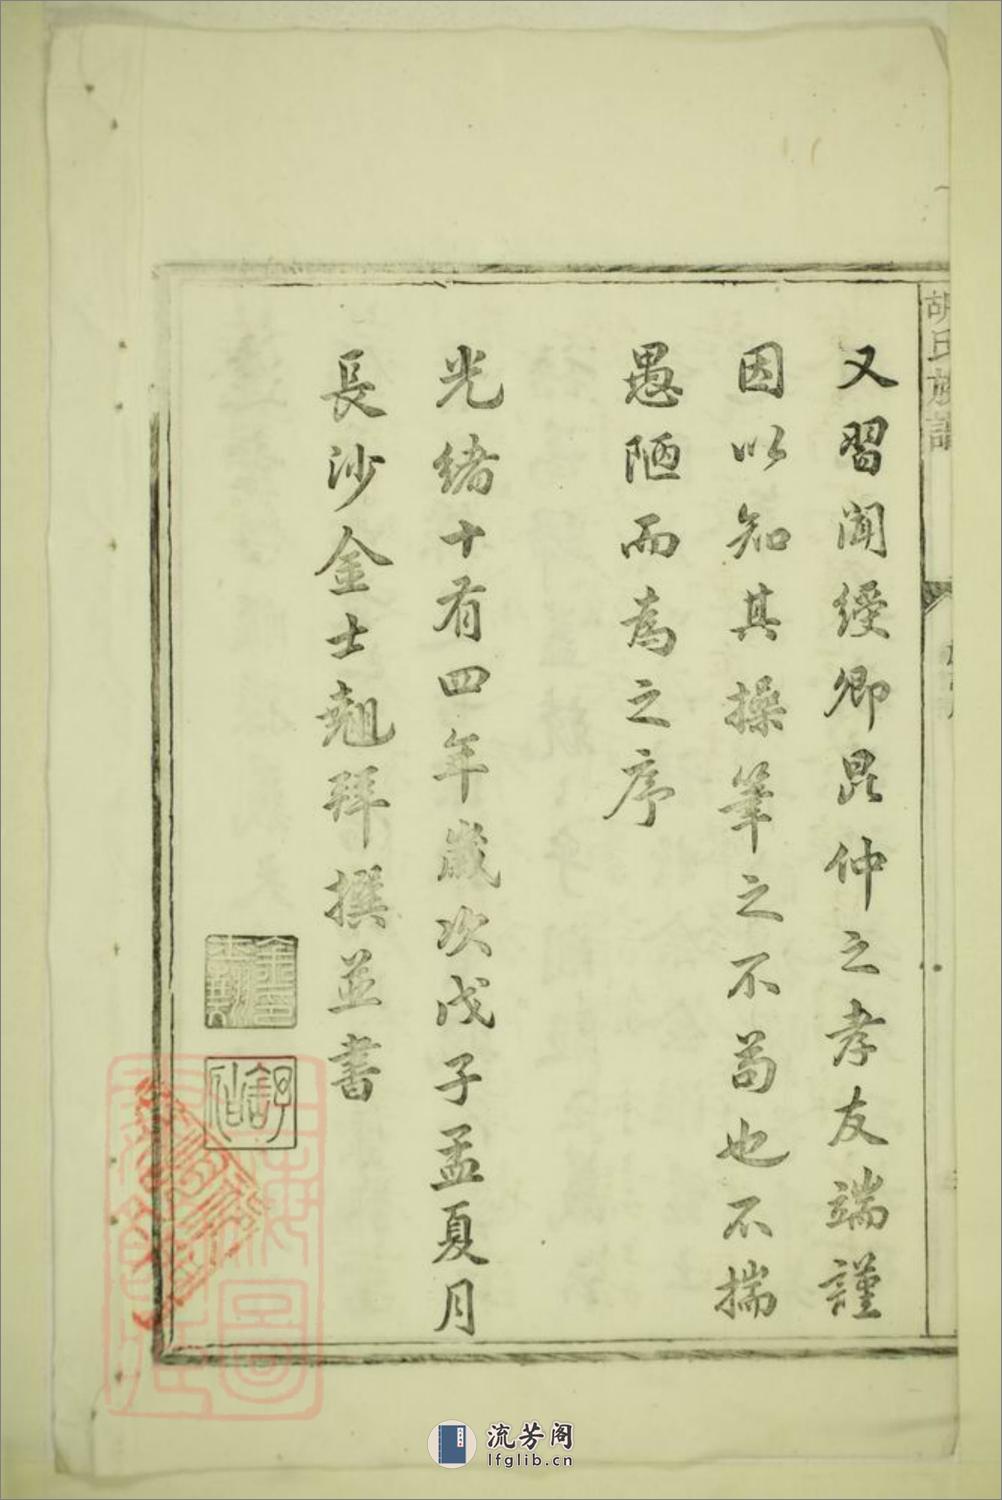 胡氏族譜
又習聞綬卿昆仲之孝友端謹
因以知其操筆之不茍也不揣
愚陋而為之序
光緒十有四年歲次戊子孟夏月
長沙金士𠒎拜撰並書
流芳阁
lfglib.cn